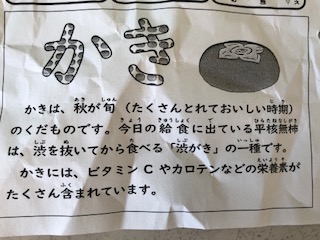 かき
かきは、秋が旬（たくさんとれておいしい時期）
のくだものです。今日の給食に出ている平核無柿
は、渋を抜いてから食べる「渋がき」の一種です。
かきには、ビタミンCやカロテンなどの栄養素が
たくさん含まれています。